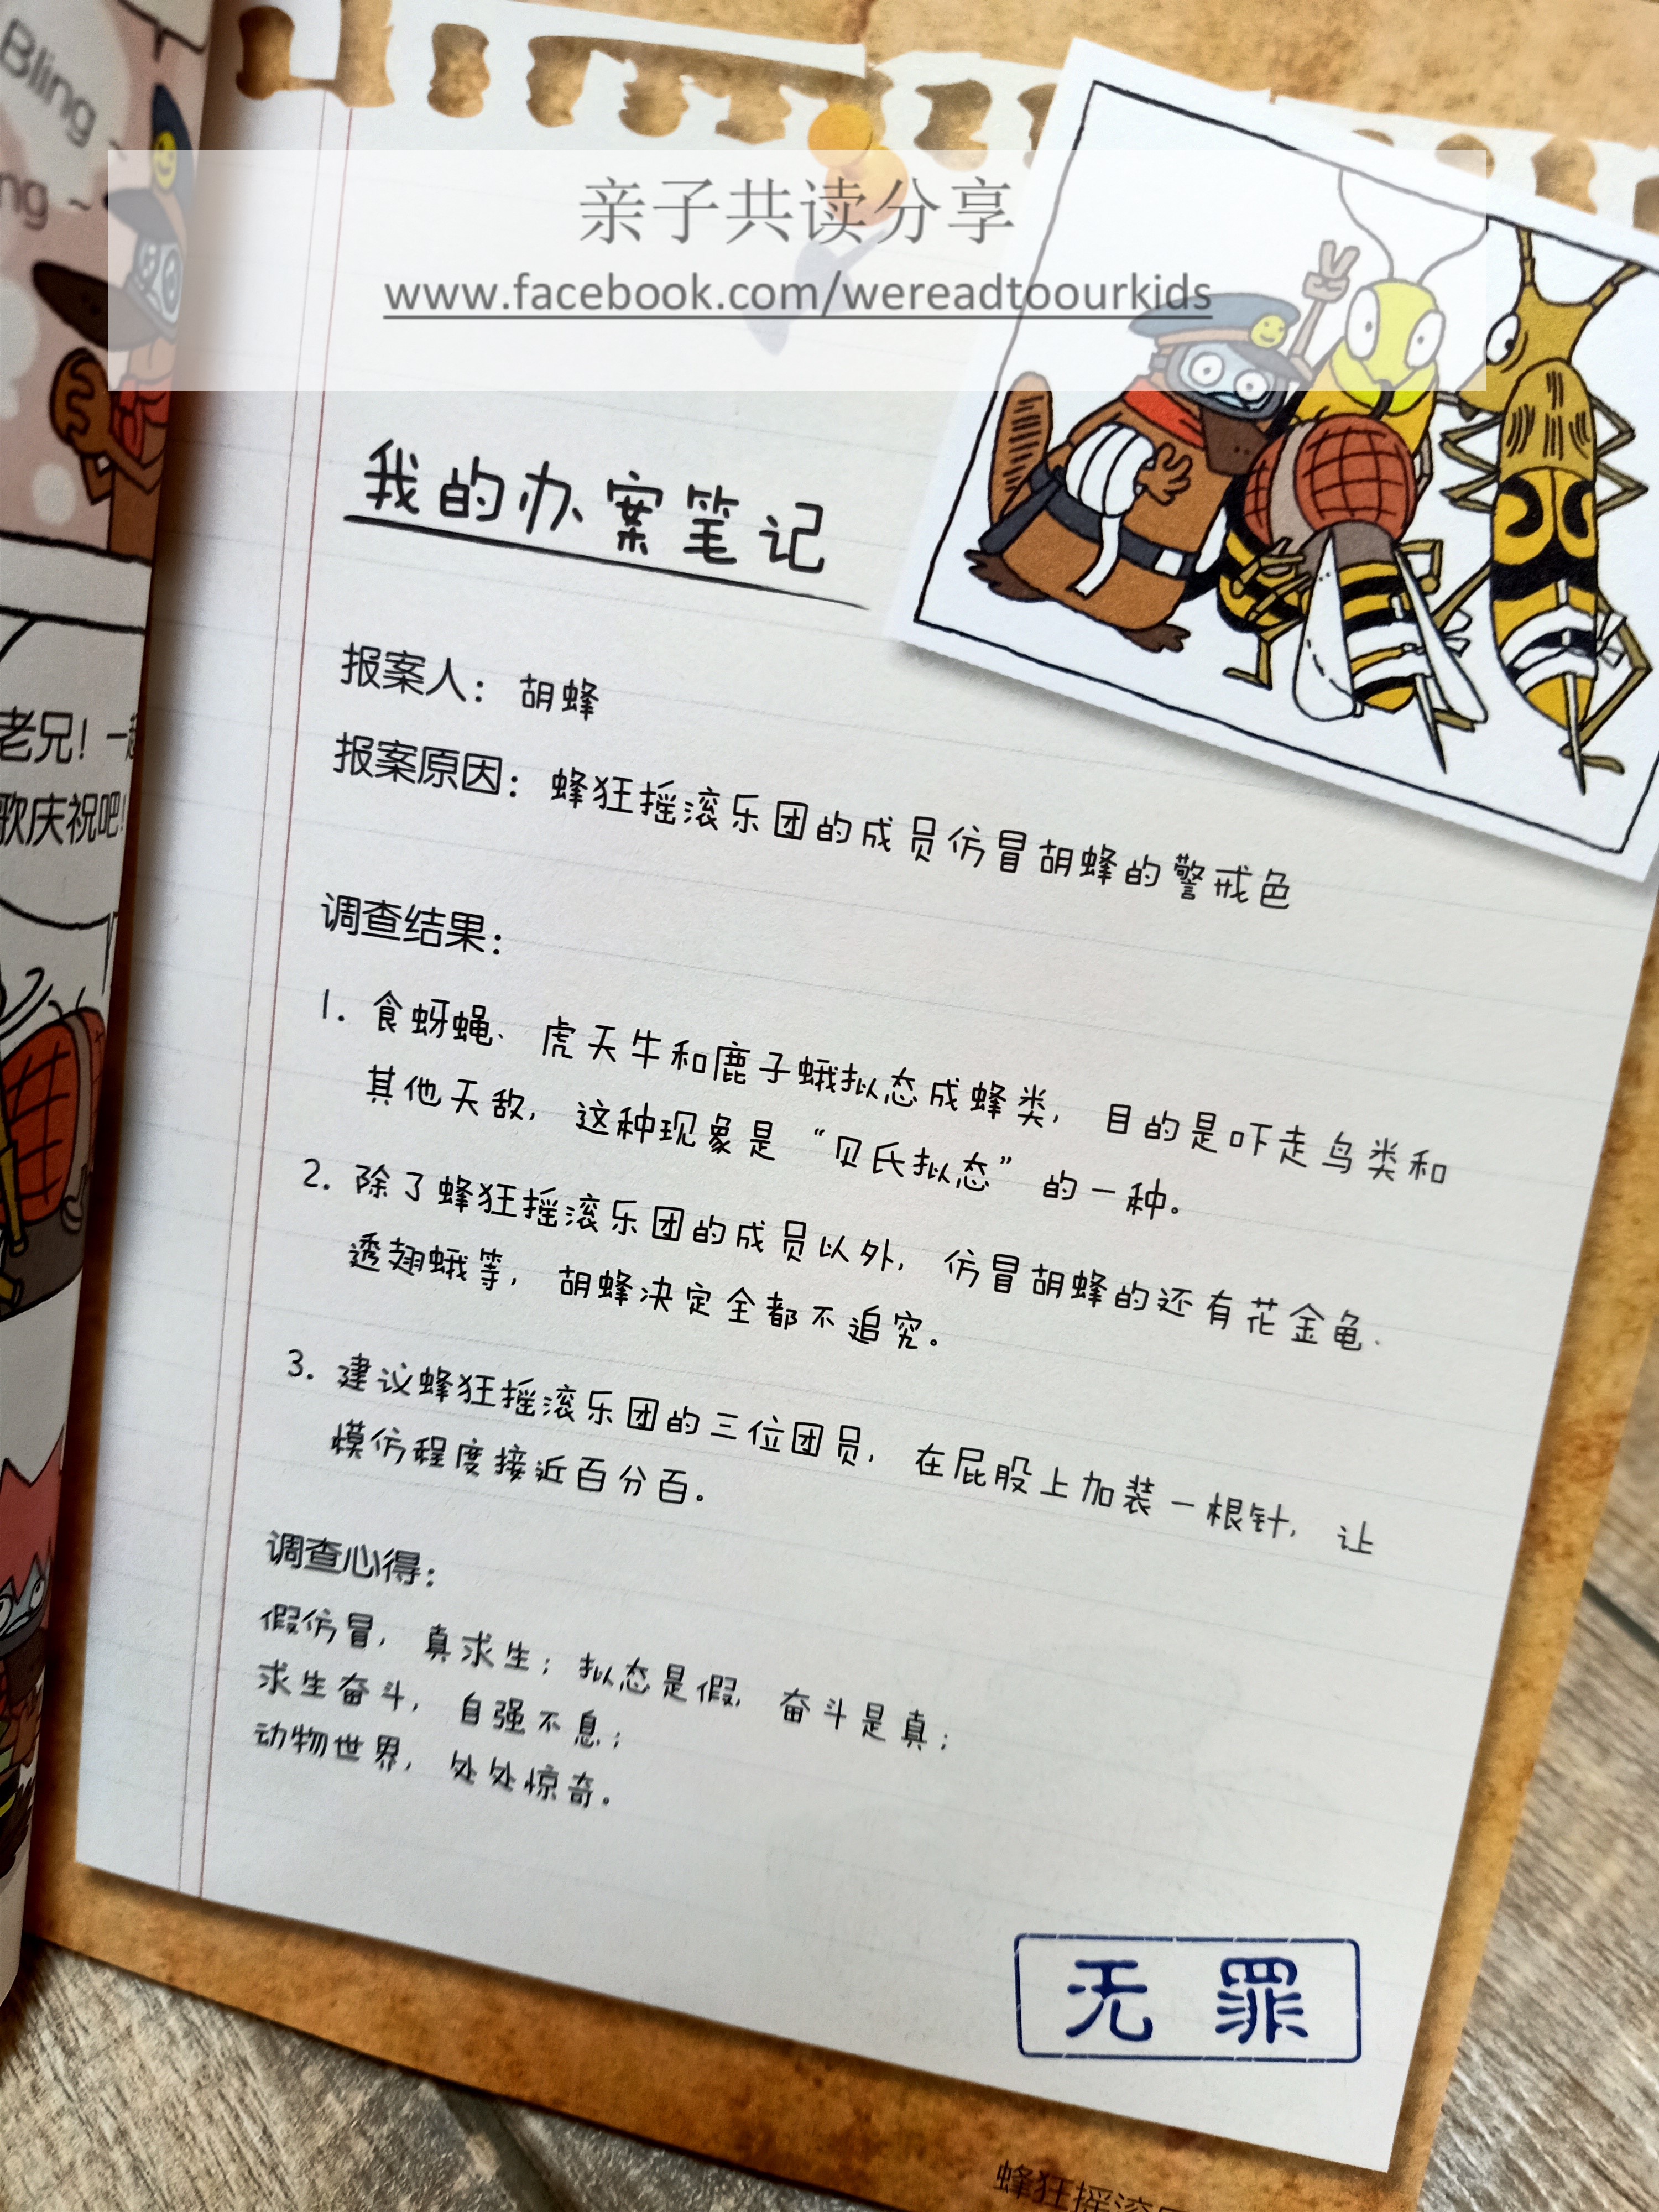 Bling ~
ng ~
亲子共读分享
www.facebook.com/wereadtoourkids
老兄！一起
歌庆祝吧！
我的办案笔记
报案人：胡蜂
报案原因：蜂狂摇滚乐团的成员仿冒胡蜂的警戒色
调查结果：
1. 食蚜蝇、虎天牛和鹿子蛾拟态成蜂类，目的是吓走鸟类和
其他天敌，这种现象是“贝氏拟态”的一种。
2. 除了蜂狂摇滚乐团的成员以外，仿冒胡蜂的还有花金龟、
透翅蛾等，胡蜂决定全都不追究。
3. 建议蜂狂摇滚乐团的三位团员，在屁股上加装一根针，让
模仿程度接近百分百。
调查心得：
假仿冒，真求生；拟态是假，奋斗是真；
求生奋斗，自强不息；
动物世界，处处惊奇。
无罪
蜂狂摇滚